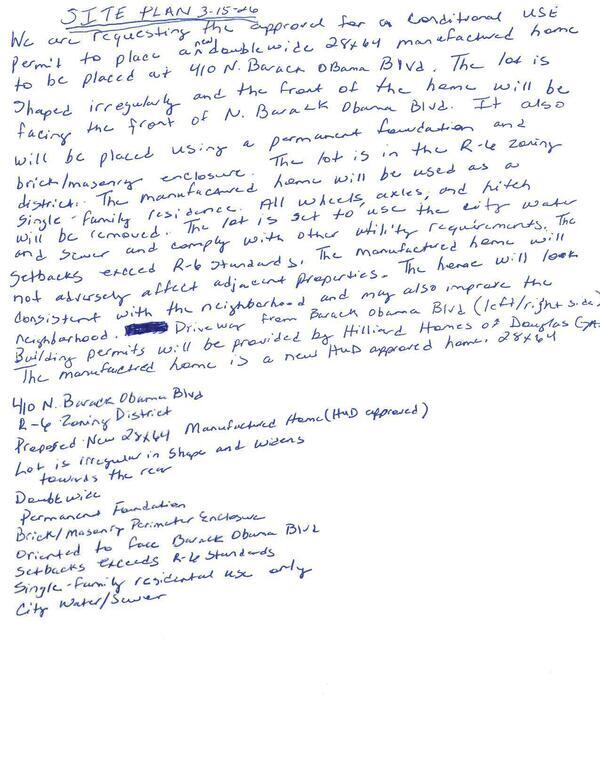 SITE PLAN 3-15-26
We are requesting the approval for a Conditional USE
Permit to place a new doublewide 28x64 manufactured home
to be placed at 410 N. Barack OBama Blvd. The lot is
Shaped irregularly and the front of the home will be
facing the front of N. Barack Obama Blvd. It also
will be placed using a permanent foundation and
brick/masonry enclosure. The lot is in the R-6 zoning
district. The manufactured home will be used as a
Single-family residence. All wheels, axles, and hitch
will be removed. The lot is set to use the city water
and sewer and comply with other utility requirements. The
Setbacks exceed R-6 Standards. The manufactured home will
not adversely affect adjacent properties. The home will look
Consistent with the neighborhood and may also improve the
neighborhood. Driveway from Barack Obama Blvd (left/right side)
Building permits will be provided by Hilliard Homes of Douglas GA.
The manufactured home is a new HUD approved home. 28x64
410 N. Barack Obama Blvd
R-6 Zoning District
Proposed New 28x64 Manufactured Home (HUD approved)
Lot is irregular in shape and widens
towards the rear
Doublewide
Permanent Foundation
Brick/Masonry Perimeter Enclosure
Oriented to face Barack Obama Blvd
Setbacks exceeds R-6 Standards
Single-family residental use only
City Water/Sewer